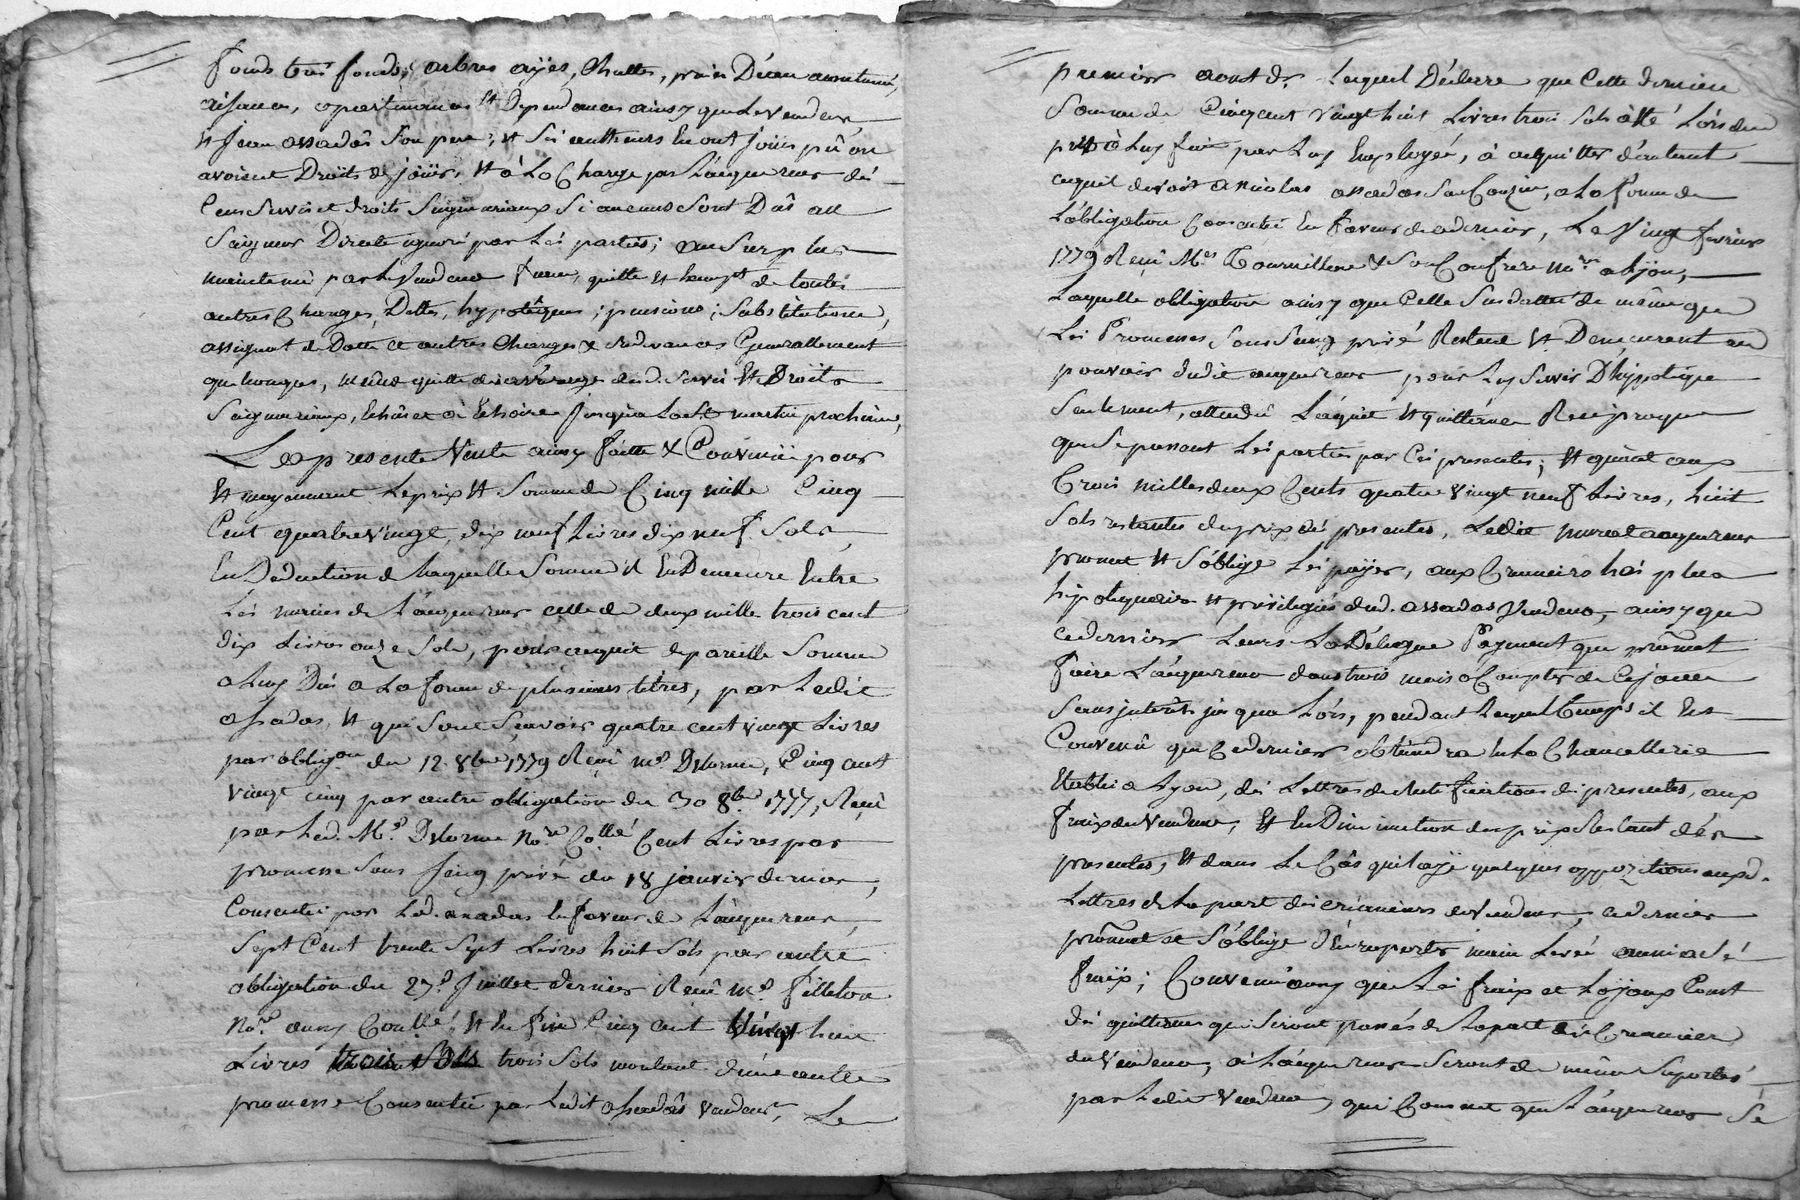 fonds très fonds, arbres ayes, Chutes, prise D'eau accoutumé,
aisances, apartenances Et Dependances ainsy que Le vendeur
Et Jean assadas Son pere, Et Ses autheurs En ont Joüis pû ou
avoient Droits de joüir, Et à La Charge par L'acquereur des
Cens Servis et droits Seigneuriaux Si aucuns Sont Dûs au
Seigneur Directe ignoré par Les parties; au Surplus
maintenu par Le Vendeur franc, quitte Et Exempt de toutes
autres Charges, Dettes, hypotêques, pensions, Substitutions,
assignat de Dotte et autres Charges & redevances Generallement
quelconques, même quitte des arrérages desd. Servis Et Droits
Seigneuriaux, Echûs et à Echoire Jusqu'a La St martin prochaine,
La presente Vente ainsy faitte & Convenüe pour
Et moyennant Le prix Et Somme de Cinq mille Cinq
Cent quatre vingt dix neuf Livres dix neuf Sols,
En Deduction de Laquelle Somme il En Demeure Entre
Les mains de L'acquereur celle de deux mille trois cent
dix Livres onze Sols, pour acquit de pareille Somme
a Luy Dûe a La forme de plusieurs titres, par Ledit
assadas, Et qui Sont Sçavoir quatre cent vingt Livres
par obligaon du 12 8bre 1779 Reçû me Delorme, Cinq cent
vingt cinq par autre obligation du 30 8bre 1777, Reçû
par Led. Me Delorme Nore Collé Cent Livres par
promesse Sous Seing privé du 18 janvier dernier,
Consentie par Led. assadas En faveur de L'acquereur,
Sept Cent trente Sept Livres huit Sols par autre
obligation du 27e Juillet dernier Reçû me filleton
Nore aussy Collé Et En fin Cinq cent Vingt huit
Livres trois Sols montant d'une autre
promesse Consentie par Ledit assadas vendeur, Le
premier aout dr. Lequel Déclare que Cette derniere
Somme de Cinq cent Vingt huit Livres trois Sols a Eté Lors du
prêt à Luy fait par Luy Employée, à acquitter d'autant
ce qu'il devoit a nicolas assadas Son Cousin, a La forme de
L'obligation Consentie En faveur de ce dernier, Le Vingt fevrier
1779 Reçû Mes Tournillon & Son Confrere Nres a Lyon,
Laquelle obligation ainsy que Celle Sus dattée de même que
Les Promesses Sous Seing privé Restent Et Demeurent au
pouvoir dudit acquereur pour Luy Servir D'hypotêque
Seulement, attendu L'acquit Et quittance Reciproque
que Se passent Les parties par Ces presentes; Et quant aux
Trois milles deux Cents quatre vingt neuf Livres, huit
Sols restantes du prix des presentes, Ledit acquereur
promet Et S'oblige Les payer, aux Creanciers Les plus
hipotequaires Et privilegiés dud. assadas Vendeur, ainsy que
ce dernier Leurs La Délegue Payement que promet
faire L'acquereur dans trois mois à Compter de Ce jour
Sans interêts jusqu'a Lors, pendant Lequel temps il Est
Convenû que Ce dernier obtiendra En La Chancellerie
Etablie a Lyon, des Lettres de Ratiffications des presentes, aux
fraix du vendeur, Et En Diminution du prix Restant des
presentes, Et dans Le Câs qu'il aye quelques oppozitions auxd.
Lettres de La part des créanciers du vendeur, ce dernier
promet et S'oblige d'En raporter main Levée a Ses
fraix; Convenu aussy que Les fraix et Loyaux Cout
des quittances qui Seront passés de La part des Creanciers
du Vendeur, à L'acquereur Seront de même Suportés
par Ledit Vendeur, qui Consent que L'acquereur Se